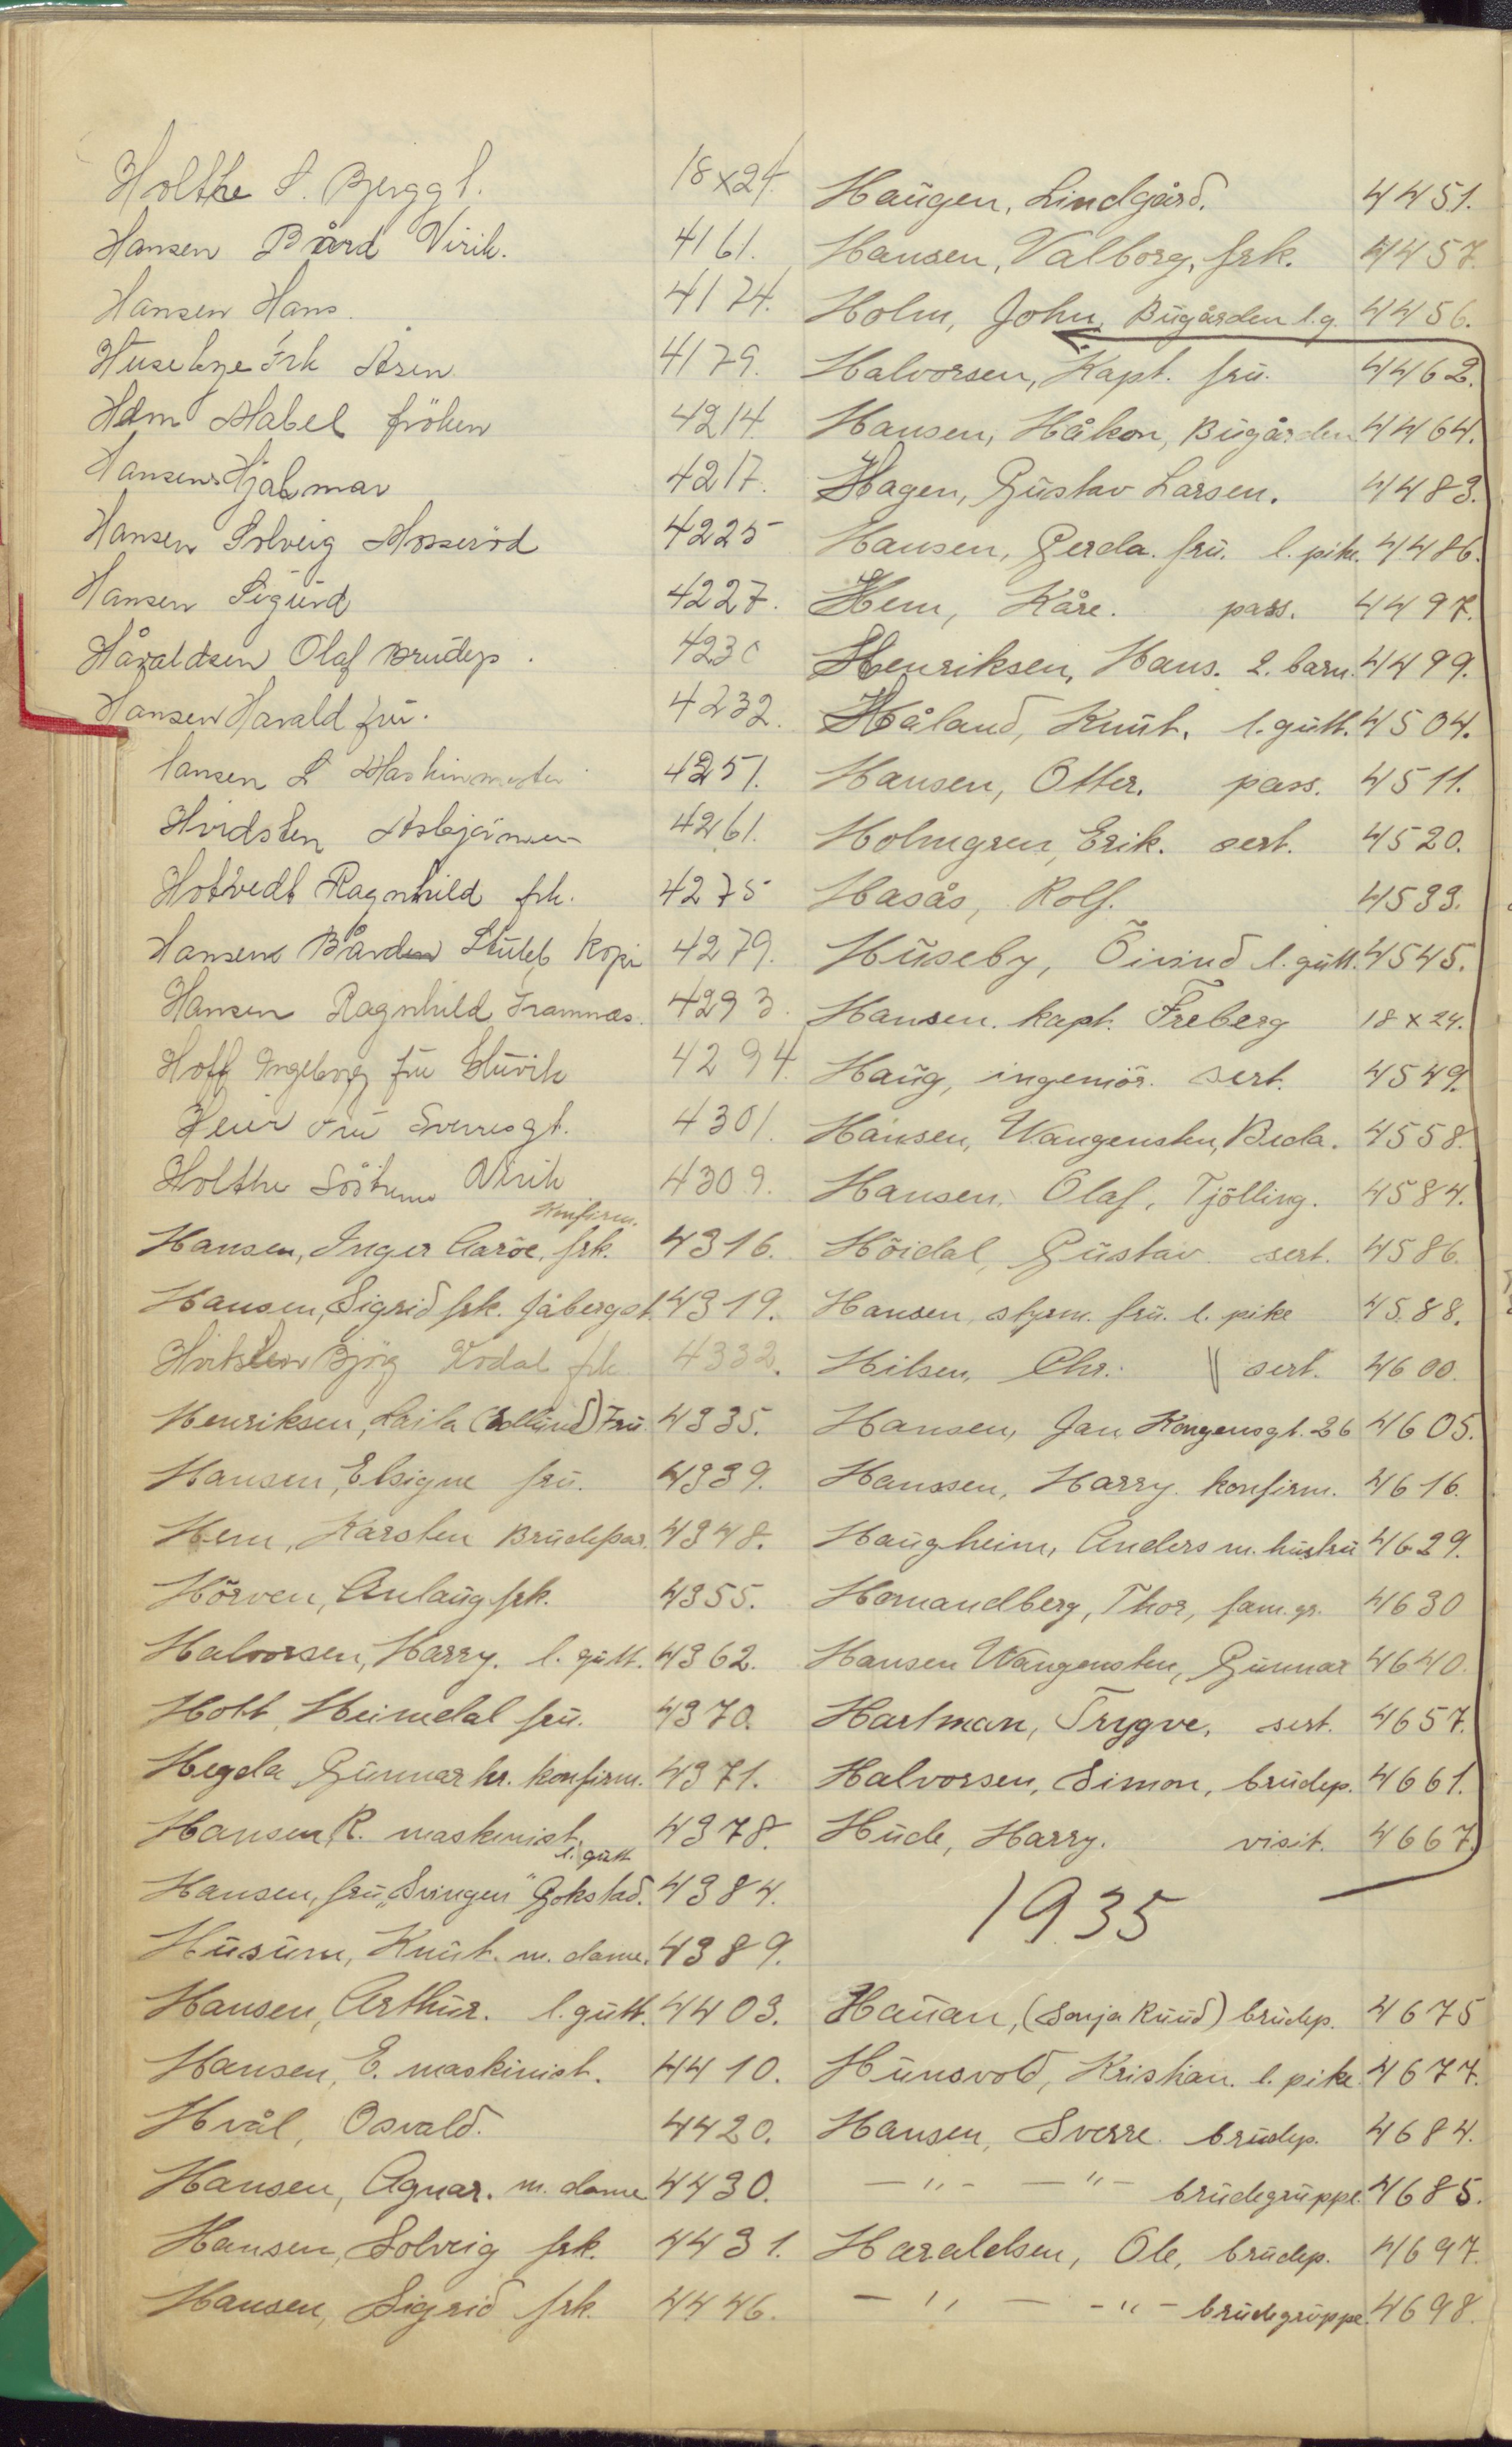 Holthe S. Bjerggt. 18x24.
Hansen Bård Virik. 4161.
Hansen Hans. 4174.
Husebye Frk Åsen 4179.
Holm Mabel fröken 4214.
Hansen Hjalmar 4217.
Hansen Solveig Mosseröd 4225
Hansen Sigurd 4227.
Håraldsen Olaf Brudep. 4230
Hansen Harald fru. 4232.
Hansen L Maskinmester 4251.
Hvidsten Asbjörnsen 4261.
Hotvedt Ragnhild frk. 4275
Hansen Bård Stubb Kopi 4279.
Hansen Ragnhild Framnæs. 4293.
Hoff Ingeborg fru 4294.
Heier Fru Sverresgt. 4301.
Holthe Söstrene Virik 4309.
Konfirm.
Hansen, Inger Aaröe, frk. 4316.
Hansen, Sigrid frk. Jåbergst. 4319.
Hvitsten Björg Kodal frk. 4332.
Henriksen, Laila (Rollund) Fru. 4335.
Hansen, Elsigne fru. 4339.
Hem, Karsten Brudepar. 4348.
Hörven, Anlaug frk. 4355.
Halvorsen, Harry. l. gutt. 4362.
Holt, Heimdal fru. 4370.
Hegda Gunnar hr. konfirm. 4371.
Hansen, R. maskinist. 4378.
l. gutt
Hansen, fru, "Svingen" Gokstad. 4384.
Husum, Knut. m. dame. 4389.
Hansen, Arthur. l. gutt. 4403.
Hansen, E. maskinist. 4410.
Hvål, Osvald. 4420.
Hansen, Agnar. m. dame 4430.
Hansen, Solveig frk. 4431.
Hansen, Sigrid frk. 4446.
Haugen, Lindgård. 4451.
Hansen, Valborg, frk. 4457.
Holm, John, Bugården l.g. 4456.
Halvorsen, Kapt. fru. 4462.
Hansen, Håkon, Bugården 4464.
Hagen, Gustav Larsen. 4483.
Hansen, Gerda. fru. l. pike. 4486.
Hem, Kåre. pass. 4497.
Henriksen, Hans. 2. barn. 4499.
Håland, Knut, l. gutt. 4504.
Hansen, Otter. pass. 4511.
Holmgren, Erik. sert. 4520.
Hasås, Rolf. 4533.
Huseby, Öivind l. gutt. 4545.
Hansen. kapt. Freberg 18x24.
Haug, ingeniör. sert. 4549.
Hansen, Wangensten, Beda. 4558.
Hansen, Olaf, Tjölling. 4584.
Höidal, Gustav. sert. 4586.
Hansen, styrm. fru. l. pike 4588.
Hilsen, Chr. sert. 4600.
Hansen, Jan Kongensgt. 26 4605.
Hanssen, Harry. konfirm. 4616.
Haugheim, Anders m. hustru 4629.
Homandberg, Thor, fam. gr. 4630
Hansen Wangensten, Gunnar 4640.
Hartman, Trygve, sert. 4657.
Halvorsen, Simon, brudep. 4661.
Hude, Harry. visit. 4667.
1935
Hauan, (Sonja Ruud) brudep. 4675
Hunsvold, Kristian. l. pike. 4677.
Hansen, Sverre. brudep. 4684.
— " — — " — brudegruppe. 4685.
Haraldsen, Ole, brudep. 4697.
— " — — " — brudegruppe. 4698.